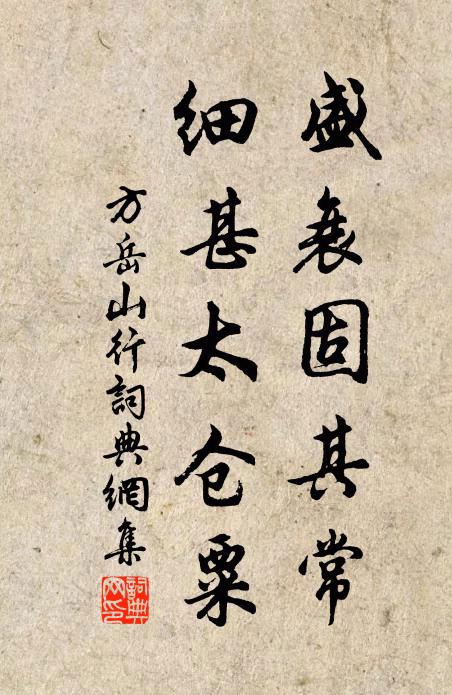 盛衰固其常
细甚太仓粟
方岳山行詞典網集
詞典
网印